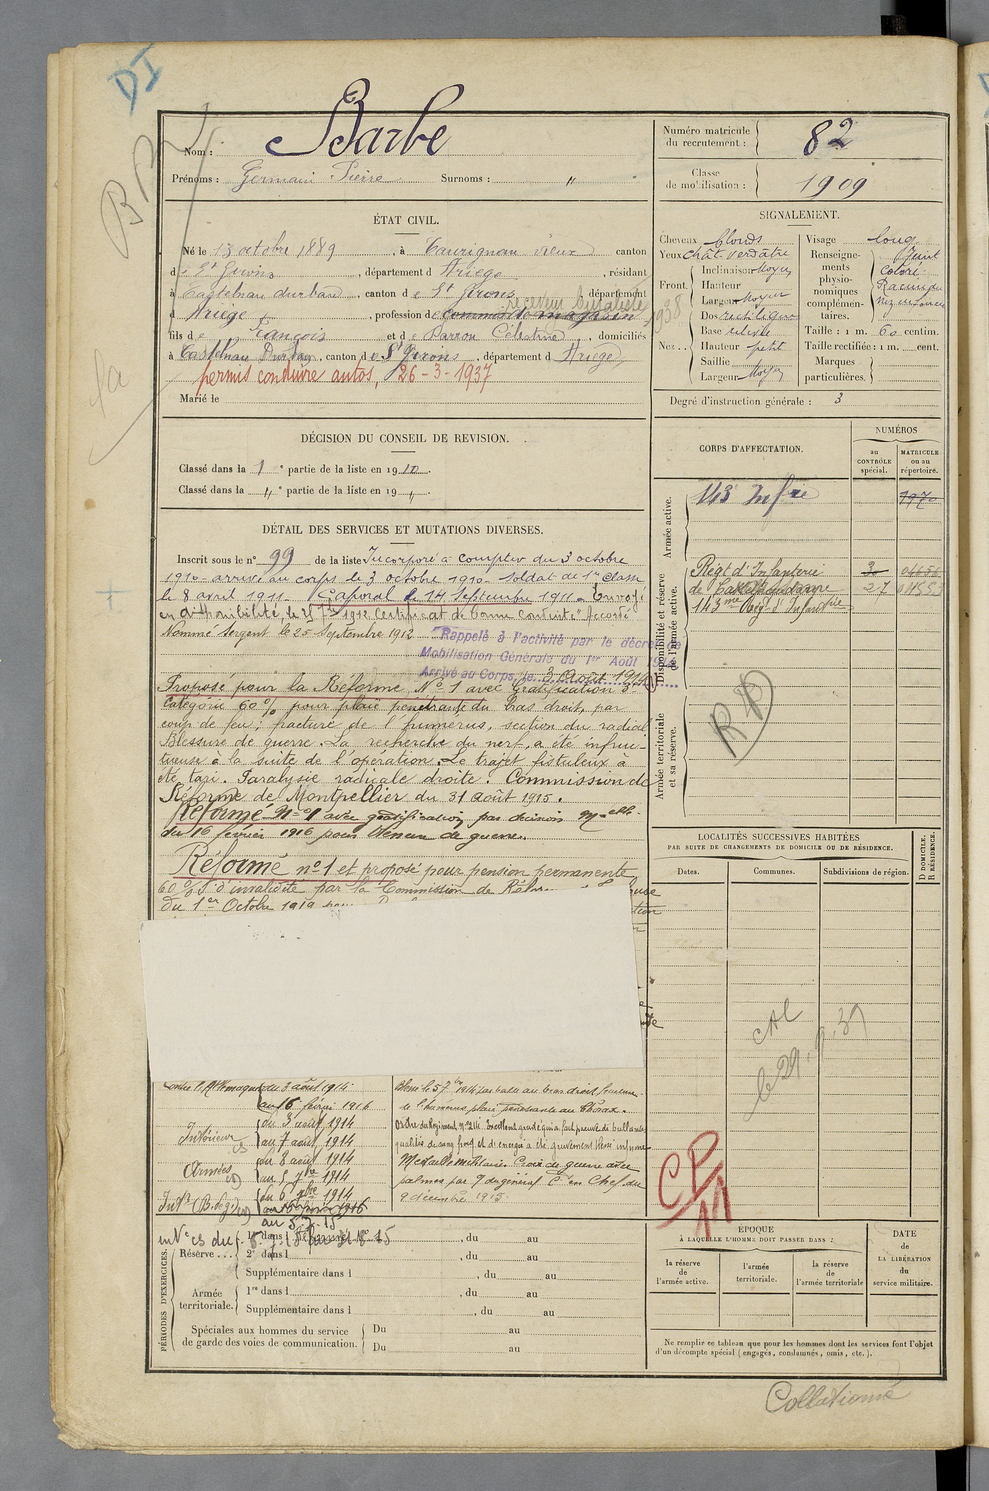 DI
Nom : Barbe
Prénoms : Germain Pierre Surnoms : "
Numéro matricule du recrutement : 82
Classe de mobilisation : 1909
ÉTAT CIVIL.
Né le 13 octobre 1889, à Taurignan vieux canton
de St Girons, département d Ariège, résidant
à Castelnau durban, canton de St Girons, département
d Ariège, profession de commis de magasin receveur buraliste 1938
fils de François et de Parron Célestine, domiciliés
à Castelnau Durban, canton de St Girons, département d Ariège
permis conduire autos, 26-3-1937
Marié le
SIGNALEMENT.
Cheveux blonds
Yeux chât. verdâtre
Front. Inclinaison Moyen
Hauteur
Largeur Moyen
Nez Dos rectiligne
Base relevée
Hauteur petit
Saillie
Largeur Moyen
Visage long
Renseignements physionomiques complémentaires. Teint coloré.
Taille : 1 m. 60 centim.
Taille rectifiée : 1 m. cent.
Marques particulières.
Degré d'instruction générale : 3
DÉCISION DU CONSEIL DE REVISION.
Classé dans la 1e partie de la liste en 1910.
Classé dans la " e partie de la liste en 19 ".
CORPS D'AFFECTATION.
NUMÉROS
au CONTRÔLE spécial.
MATRICULE ou au répertoire.
Armée active.
143e Infrie 1970
Disponibilité et réserve de l'armée active.
Régt d'Infanterie 30
de 27
143me Rég. d'Infanterie
Armée territoriale et sa réserve.
DÉTAIL DES SERVICES ET MUTATIONS DIVERSES.
Inscrit sous le n° 99 de la liste Incorporé à compter du 3 octobre
1910 arrivé au corps le 3 octobre 1910. Soldat de 1re classe
le 8 avril 1911. Caporal le 14 Septembre 1911. Envoyé
en disponibilité, le 25 7bre 1912 Certificat de bonne conduite "Accordé"
Nommé sergent le 25 Septembre 1912
Rappelé à l'activité par le décret de
Mobilisation Générale du 1er Août 1914
Arrivé au Corps le 3 Août 1914
Proposé pour la Réforme N° 1 avec Gratification 5e
Catégorie 60% pour plaie pénétrante du bras droit, par
coup de feu ; fracture de l'humérus, section du radial
Blessure de guerre. La recherche du nerf, a été infruc-
tueuse à la suite de l'opération. Le trajet fistuleux a
été tari. Paralysie radicale droite. Commission de
Réforme de Montpellier du 31 Août 1915.
Réformé N° 1 avec gratification par décision Melle
du 16 février 1916 pour blessure de guerre.
Réformé n° 1 et proposé pour pension permanente
60% d'invalidité par la Commission de
du 1er Octobre 1919
LOCALITÉS SUCCESSIVES HABITÉES
PAR SUITE DE CHANGEMENTS DE DOMICILE OU DE RÉSIDENCE.
Dates. Communes. Subdivisions de région. D DOMICILE. R RÉSIDENCE.
le 29.9.39
contre l'Allemagne du 3 août 1914
au 16 février 1916
Intérieur du 3 août 1914
au 7 août 1914
Armées du 8 août 1914
au 5 7bre 1914
Intr du 6 7bre 1914
au 16 février 1916
au 5.7.15
Blessé le 5 7bre 1914 par balle au bras droit, fracture
de l'humérus, plaie pénétrante au thorax.
Ordre du Régiment Excellent gradé qui a fait preuve de brillantes
qualités de sang froid et d'énergie a été grièvement blessé
Médaille militaire. Croix de guerre avec
palmes par du général Ct en Chef du
9 décembre 1915.
CP
11
PÉRIODES D'EXERCICES.
Réserve... 1re dans l , du au
2e dans l , du au
Supplémentaire dans l , du au
Armée territoriale. 1re dans l , du au
Supplémentaire dans l , du au
Spéciales aux hommes du service de garde des voies de communication. Du au
Du au
ÉPOQUE
À LAQUELLE L'HOMME DOIT PASSER DANS :
la réserve de l'armée active.
l'armée territoriale.
la réserve de l'armée territoriale
DATE DE LA LIBÉRATION du service militaire.
Ne remplir ce tableau que pour les hommes dont les services font l'objet
d'un décompte spécial (engagés, condamnés, omis, etc.).
Collationné